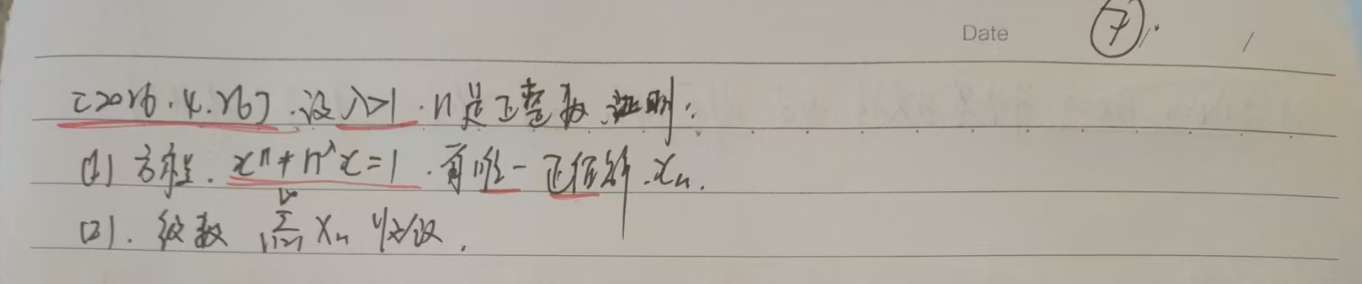 Date ⑦. /
[2026.4.26].设λ>1.n是正整数.证明:
(1)方程.xⁿ+n^λx=1.有唯一正值解.xₙ.
(2).级数 ∑_{n=1}^∞ xₙ 收敛.